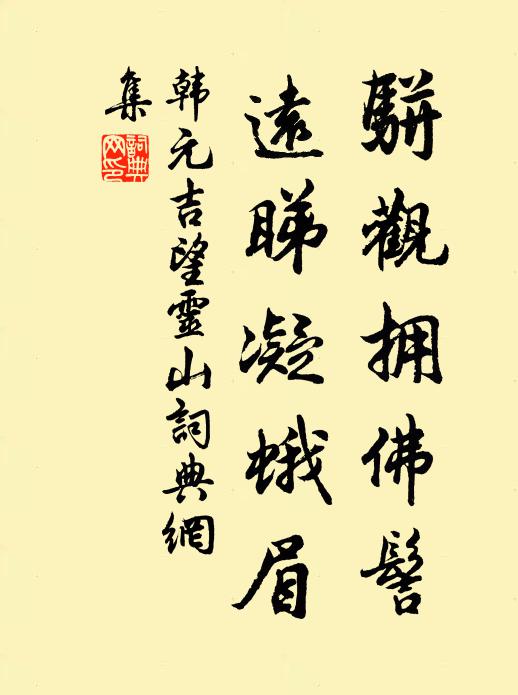 駢觀拥佛髻
遠睇凝蛾眉
韩元吉望靈山詞典網
集
詞典网印